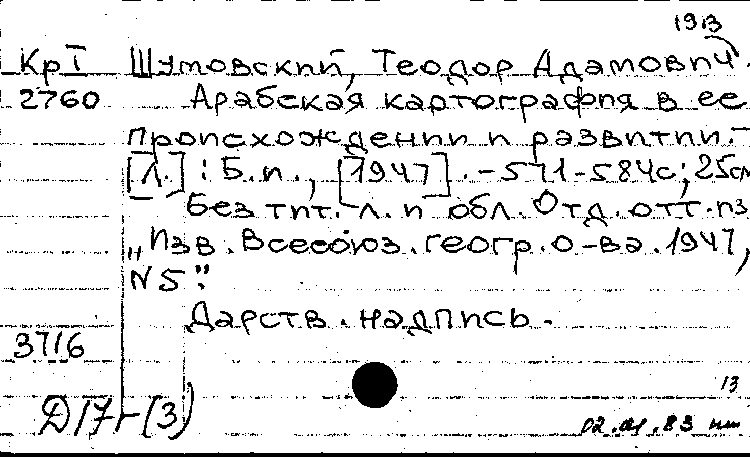 1913
КрТ Шумовский, Теодор Адамович.
2760 Арабская картография в ее
происхождении и развитии.-
[Л.] : Б.и., [1947]. - 571-584с; 25см
Без тит. л. и обл. Отд. отт. из
„Изв. Всесоюз. геогр. о-ва. 1947,
N5".
Дарств. надпись.
3716
13
Д17-(3)
02.01.83